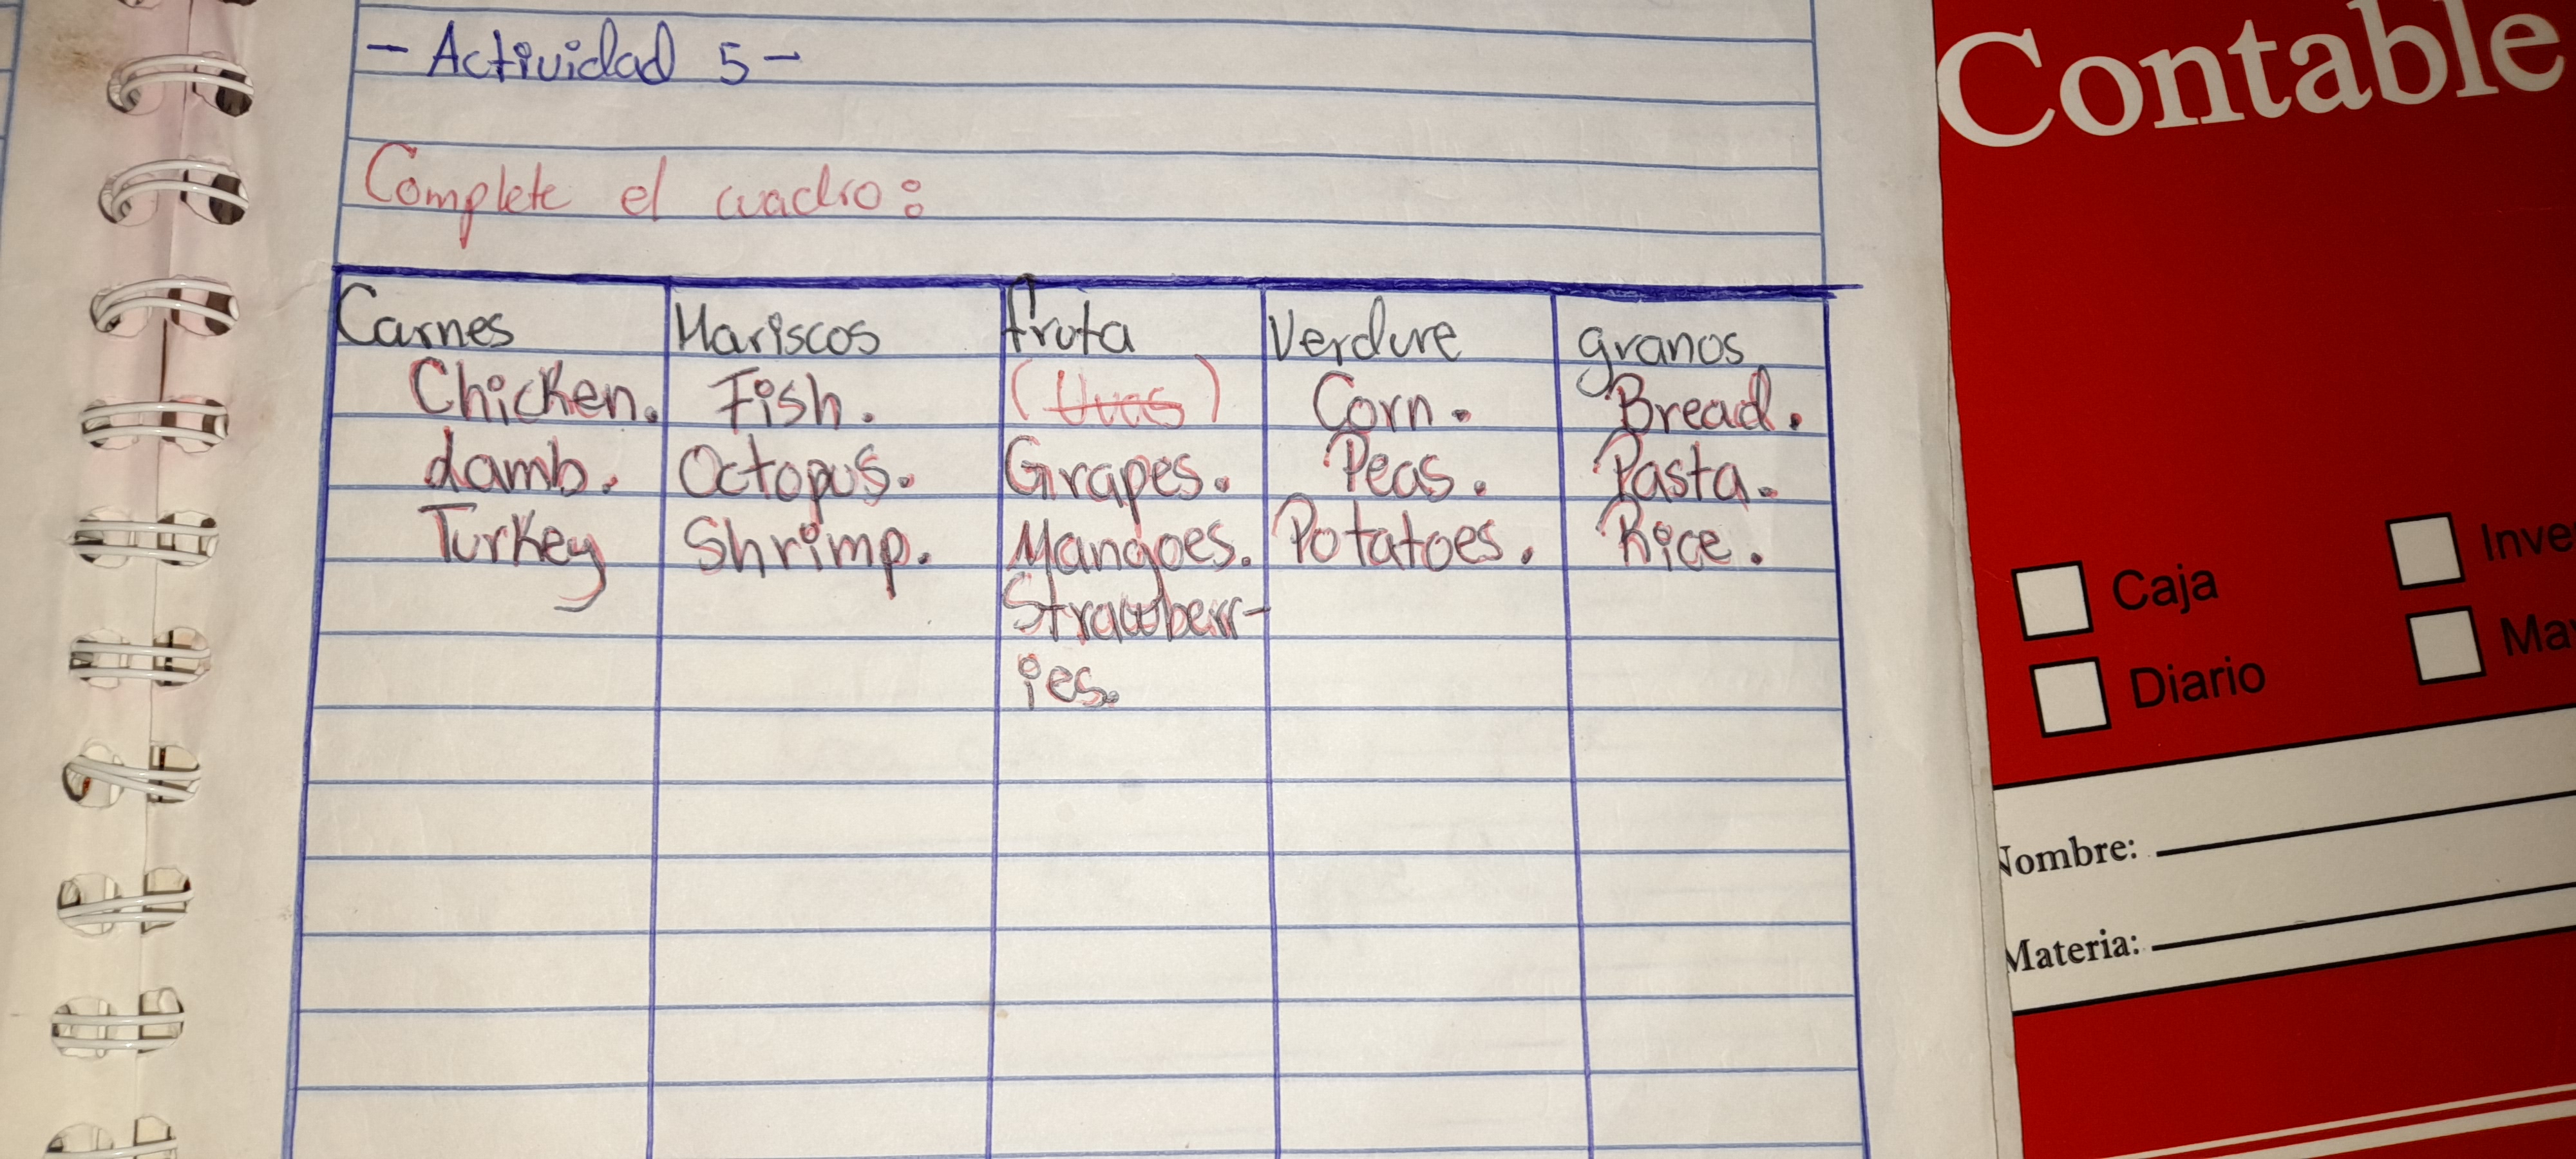 - Actividad 5 -
Complete el cuadro:
Carnes Mariscos fruta Verdure granos
Chicken. Fish. (Uvas) Corn. Bread.
Lamb. Octopus. Grapes. Peas. Pasta.
Turkey Shrimp. Mangoes. Potatoes. Rice.
Strawberr-
ies.
Contable
Caja
Diario
Nombre:
Materia: